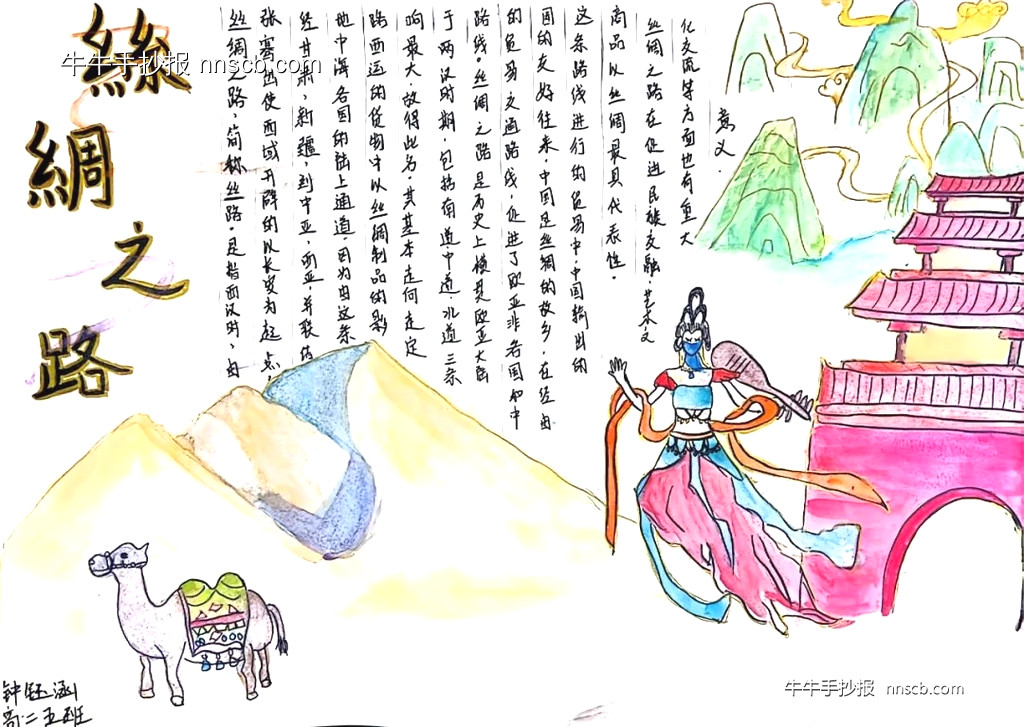 絲綢之路
牛牛手抄报 nnscb.com
丝绸之路,简称丝路,是指西汉时,由
张骞出使西域开辟的以长安为起点
经甘肃、新疆,到中亚、西亚,并联结
地中海各国的陆上通道,因为由这条
路西运的货物中以丝绸制品的影
响最大,故得此名.其基本走向定
于两汉时期,包括南道中道、北道三条
路线.丝绸之路是历史上横贯欧亚大陆
的贸易交通路线,促进了欧亚非各国和中
国的友好往来.中国是丝绸的故乡,在经由
这条路线进行的贸易中,中国输出的
商品以丝绸最具代表性.
丝绸之路在促进民族交融、艺术文
化交流等方面也有重大
意义.
钟钰涵
高二五班
牛牛手抄报 nnscb.com